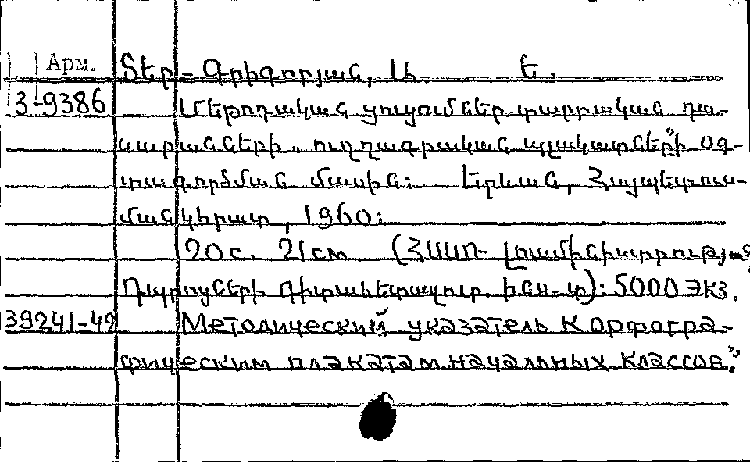 Арм. Տեր-Գրիգորյան, Ա. Ե.
3-9386 Մեթոդական ցուցումներ տարրական դպ-
րոցների „ուղղագրական պլակատների" օգ-
տագործման մասին: Երևան, Հայպետուս-
մանկհրատ, 1960:
20 с. 21 см (ՀՍՍՌ Լուսմինիստրության
Դպրոցների գիտահետազոտ. ինս-տ): 5000 экз.
39241-42 Методический указатель к орфогра-
фическим плакатам начальных классов."